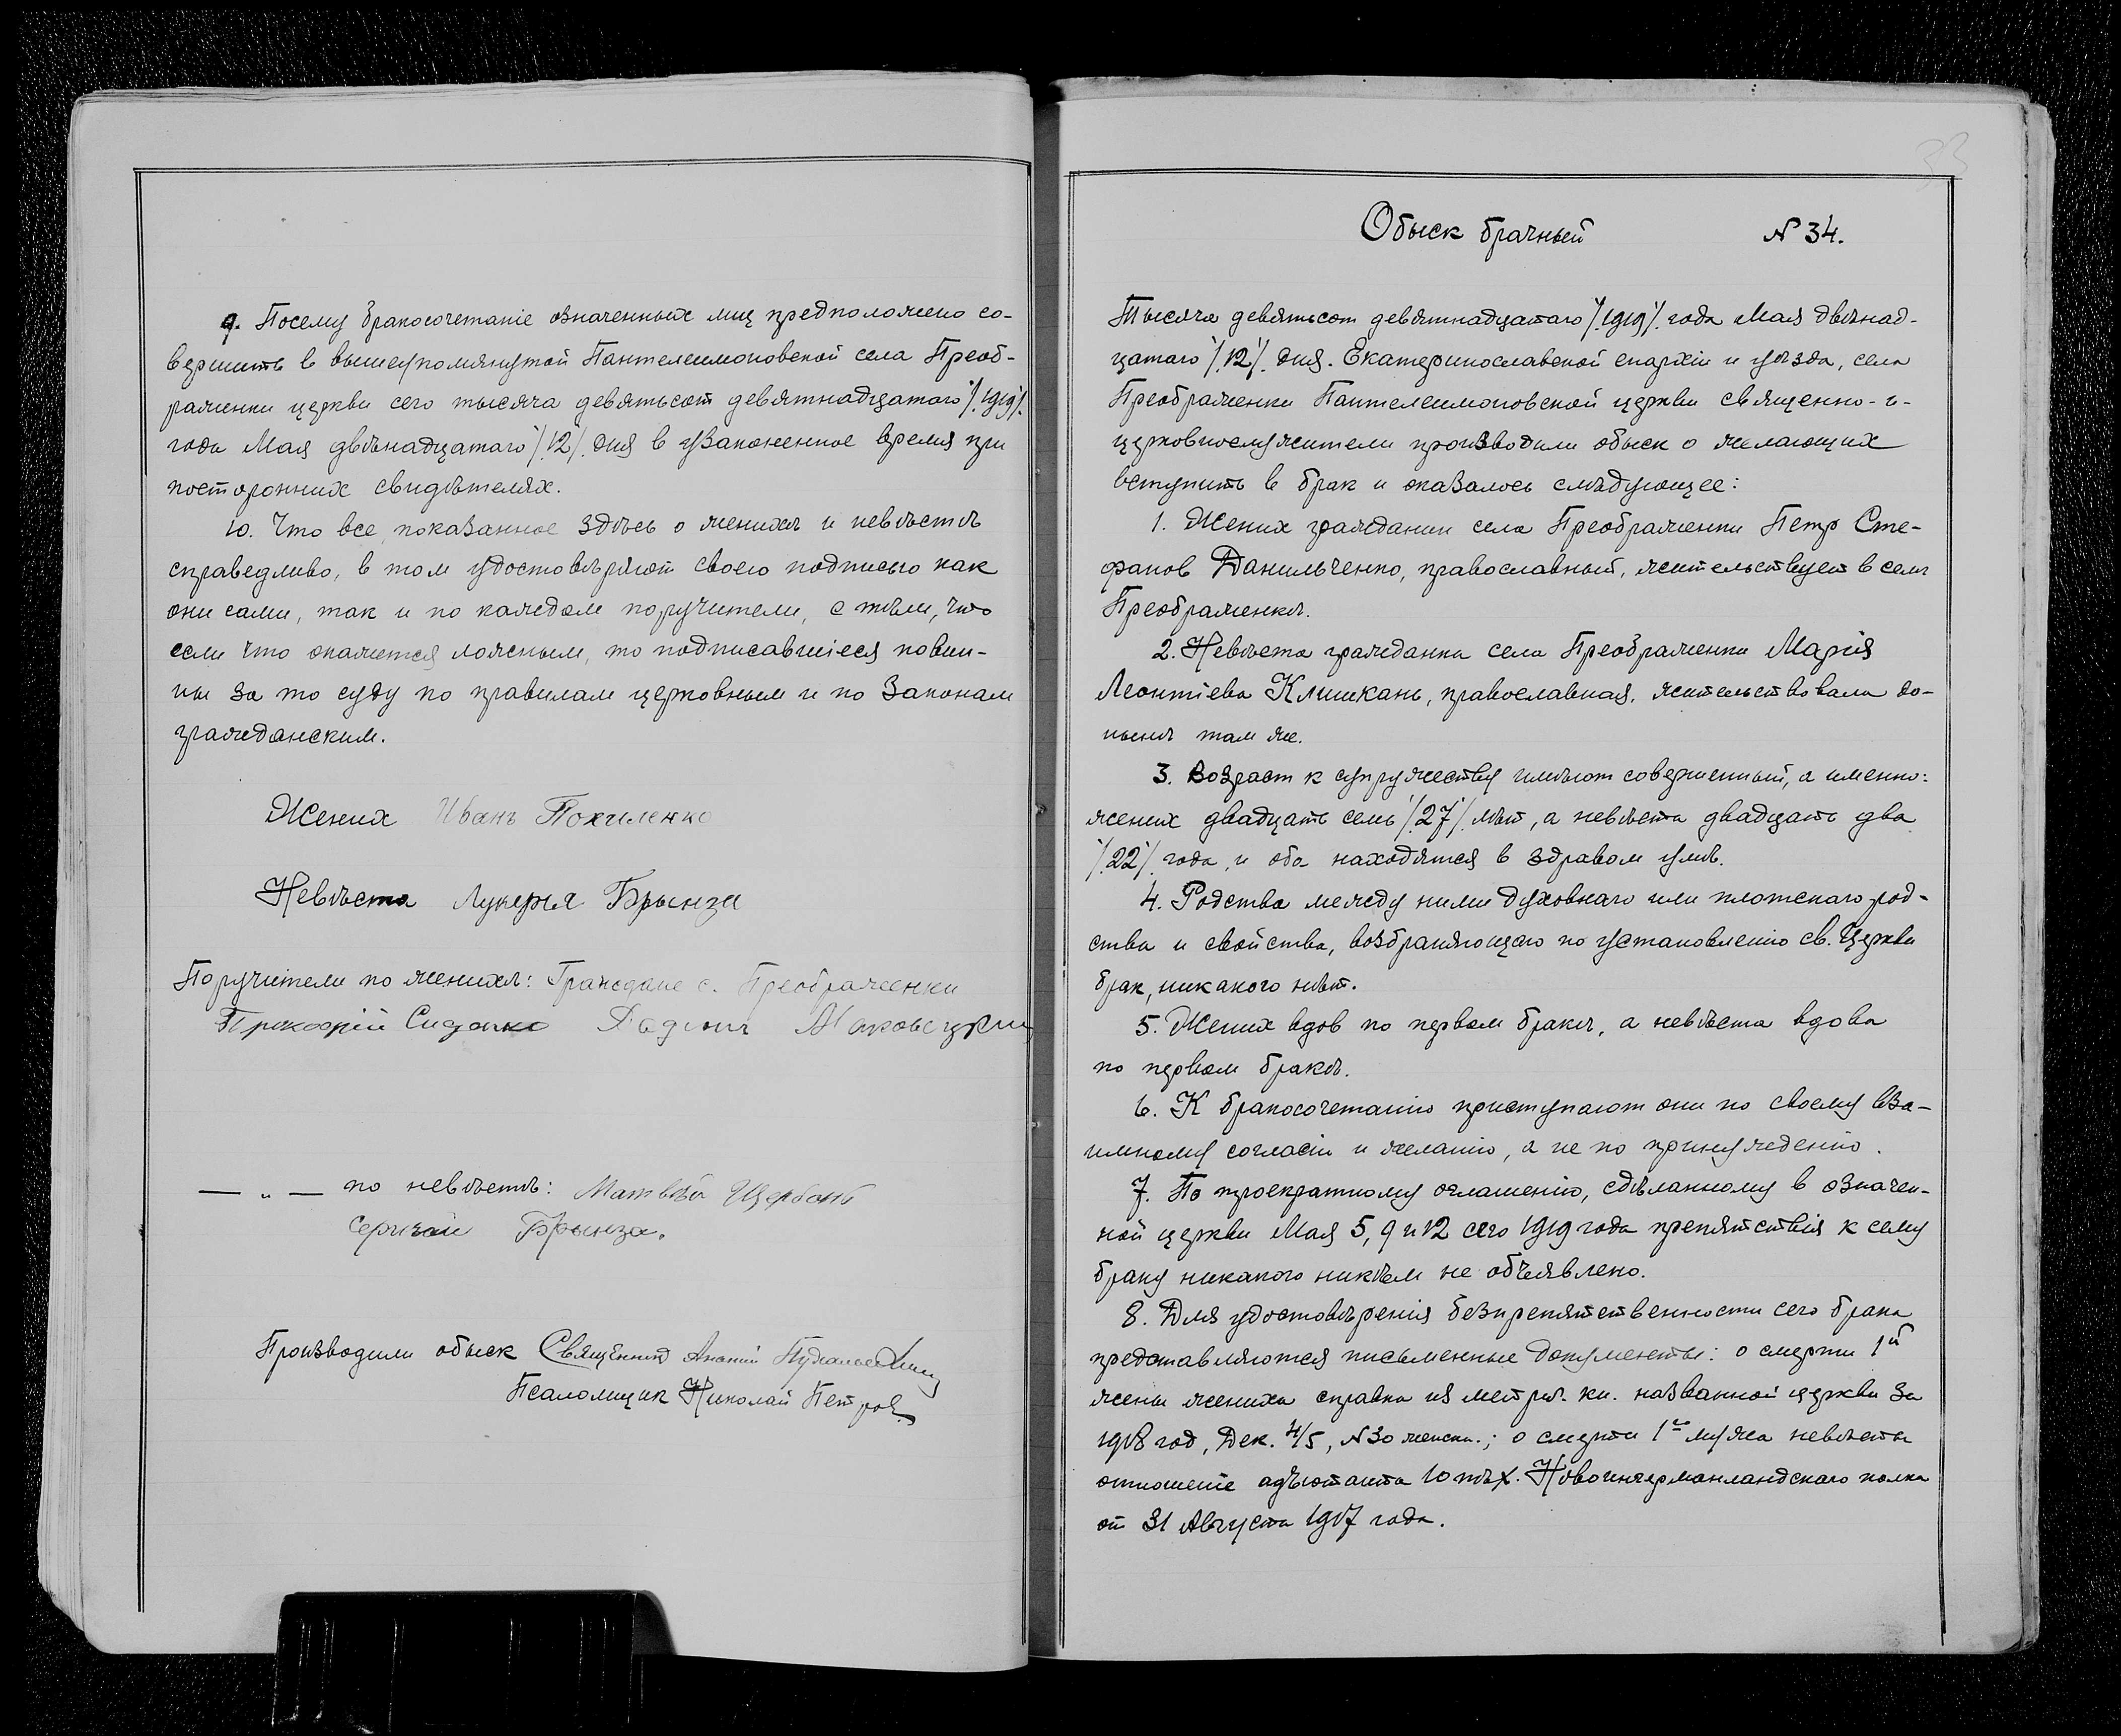 9. Посему бракосочетаніе означенных лиц предположено со-
вершить в вышеупомянутой Пантелеимоновской села Преоб-
раженки церкви сего тысяча девятьсот девятнадцатаго /.1919/.
года Мая двѣнадцатаго /.12/. дня в узаконенное время при
посторонних свидѣтелях.
10. Что все, показанное здѣсь о женихѣ и невѣстѣ
справедливо, в том удостовѣряют своею подписью как
они сами, так и по каждом поручители, с тѣм, что
если что окажется ложным, то подписавшіеся повин-
ны за то суду по правилам церковным и по законам
гражданским.
Жених Иванъ Похиленко
Невѣста Лукерья Брынза
Поручители по женихѣ: Граждане с. Преображенки
Прокофій
— „ — по невѣстѣ: Матвѣй Щербань
Сергѣй Брынза.
Производили обыск Священник Ананій
Псаломщик Николай Петров
33
Обыск брачный № 34.
Тысяча девятьсот девятнадцатаго /.1919/. года Мая двѣнад-
цатаго /.12/. дня. Екатеринославской епархіи и уѣзда, села
Преображенки Пантелеимоновской церкви священно-и-
церковнослужители производили обыск о желающих
вступить в брак и оказалось слѣдующее:
1. Жених гражданин села Преображенки Петр Сте-
фанов Данильченко, православный, жительствует в селѣ
Преображенкѣ.
2. Невѣста гражданка села Преображенки Марія
Леонтіева Клишкань, православная, жительствовала до-
нынѣ там же.
3. Возраст к супружеству имѣют совершенный, а именно:
жених двадцать семь /.27/. лѣт, а невѣста двадцать два
/.22/. года, и оба находятся в здравом умѣ.
4. Родства между ними духовнаго или плотскаго род-
ства и свойства, возбраняющаго по установленію св. Церкви
брак, никакого нѣт.
5. Жених вдов по первом бракѣ, а невѣста вдова
по первом бракѣ.
6. К бракосочетанію приступают они по своему вза-
имному согласію и желанію, а не по принужденію.
7. По троекратному оглашенію, сдѣланному в означен-
ной церкви Мая 5, 9 и 12 сего 1919 года препятствія к сему
браку никакого никѣм не объявлено.
8. Для удостовѣренія безпрепятственности сего брака
представляются письменные документы: о смерти 1й
жены жениха справка из метрич. кн. названной церкви за
1918 год, Дек. 4/5, №30 женск.; о смерти 1го мужа невѣсты
отношеніе адъютанта 10 пѣх. Новоингерманландскаго полка
от 31 Августа 1917 года.